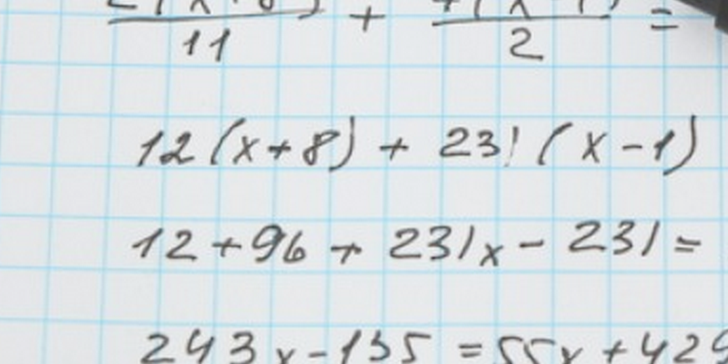 11 + 2 =
12(x+8) + 231(x-1)
12+96+231x-231=
243x-135=55x+424